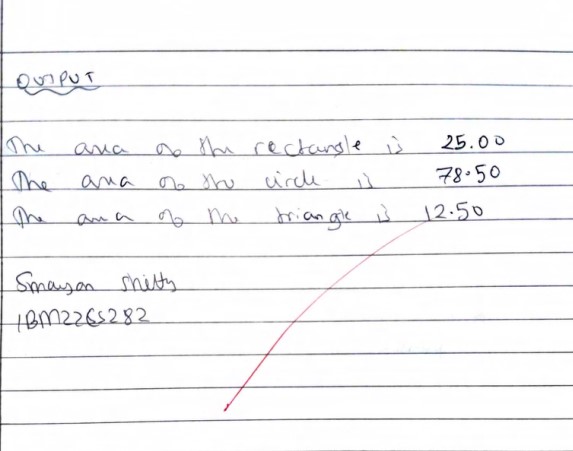 OUTPUT
The area of the rectangle is 25.00
The area of the circle is 78.50
The area of the triangle is 12.50
Smayan Shetty
1BM22CS282